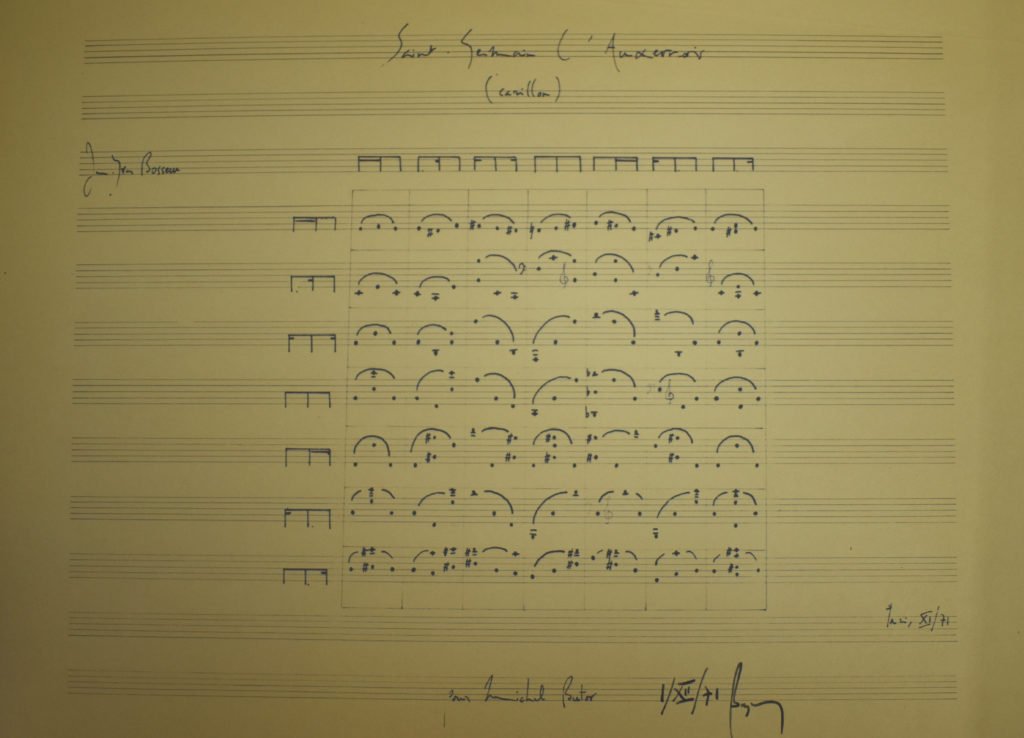 Saint-Germain l'Auxerrois
(carillon)
Jean-Yves Bosseur
Paris, XI/71
pour Michel Butor 1/XII/71